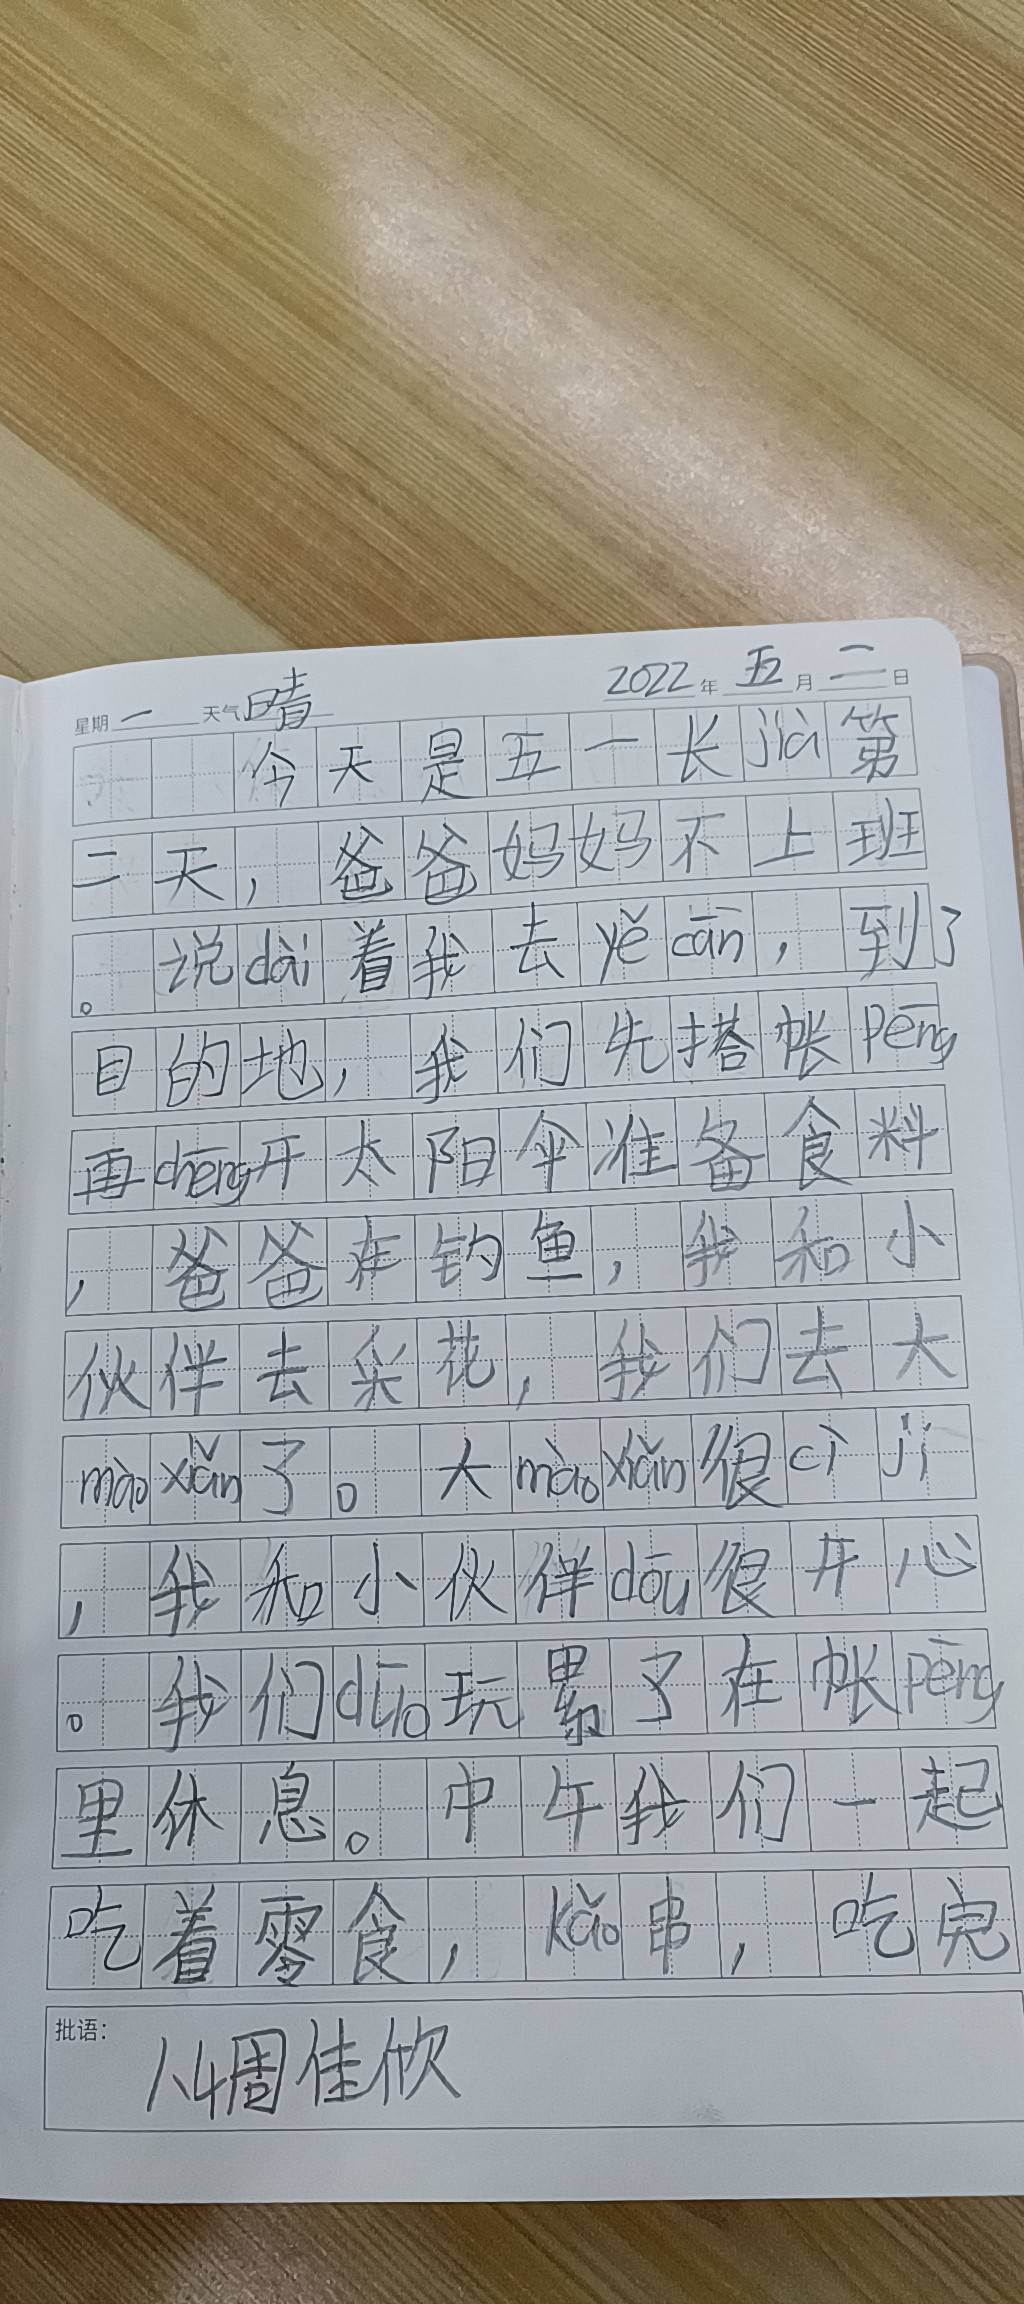 星期一 天气晴 2022年五月二日
今天是五一长jià第
二天，爸爸妈妈不上班
。说dài着我去yě cān，到了
目的地，我们先搭帐Pēng
再chēng开太阳伞准备食料
，爸爸在钓鱼，我和小
伙伴去采花，我们去大
mào xiǎn了。大mào xiǎn很cì jī
，我和小伙伴dōu很开心
。我们dūo玩累了在帐Pēng
里休息。中午我们一起
吃着零食，kǎo串，吃完
批语： 1.4周佳欣